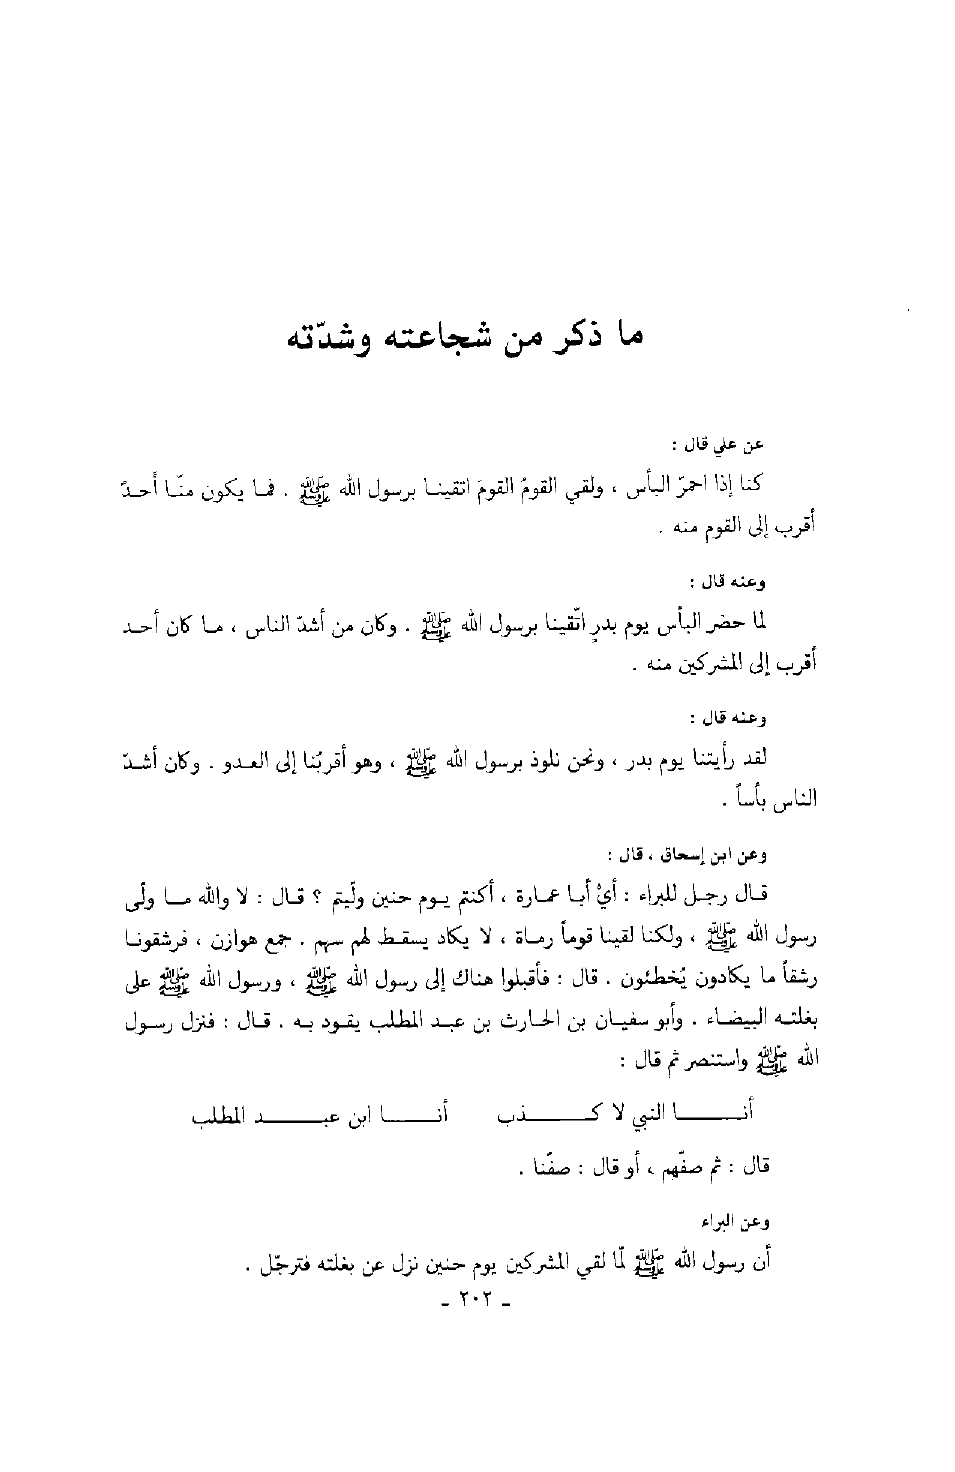 ما ذكر من شجاعته وشدّته
عن علي قال :
كنا إذا احمرّ البأس ، ولقي القومُ القومَ اتقينا برسول الله ﷺ . فما يكون منّا أحدٌ
أقرب إلى القوم منه .
وعنه قال :
لما حضر البأس يوم بدرٍ اتّقينا برسول الله ﷺ . وكان من أشدّ الناس ، ما كان أحد
أقرب إلى المشركين منه .
وعنه قال :
لقد رأيتنا يوم بدر ، ونحن نلوذ برسول الله ﷺ ، وهو أقربُنا إلى العدو . وكان أشدّ
الناس بأساً .
وعن ابن إسحاق ، قال :
قال رجل للبراء : أيْ أبا عمارة ، أكنتم يوم حنين ولّيتم ؟ قال : لا والله ما ولّى
رسول الله ﷺ ، ولكنا لقينا قوماً رماة ، لا يكاد يسقط لهم سهم . جمع هوازن ، فرشقونا
رشقاً ما يكادون يُخطئون . قال : فأقبلوا هناك إلى رسول الله ﷺ ، ورسول الله ﷺ على
بغلته البيضاء . وأبو سفيان بن الحارث بن عبد المطلب يقود به . قال : فنزل رسول
الله ﷺ واستنصر ثم قال :
أنا النبي لا كذب أنا ابن عبد المطلب
قال : ثم صفّهم ، أو قال : صفّنا .
وعن البراء
أن رسول الله ﷺ لمّا لقي المشركين يوم حنين نزل عن بغلته فترجّل .
- ٢٠٢ -